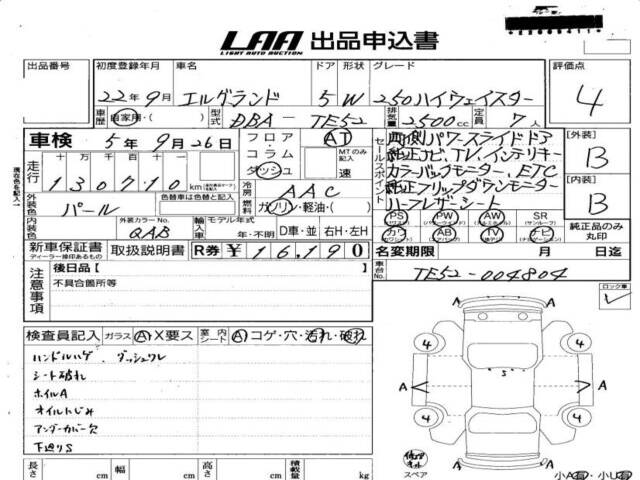 LAA 出品申込書
LIGHT AUTO AUCTION
出品番号 初度登録年月 車名 ドア 形状 グレード 評価点
22年9月 エルグランド 5 W 250ハイウェイスター 4
車歴 自家用・( ) 型式 DBA-TE52 排気量 2500cc 定員 7人
車検 5年9月26日 フロア・コラム・ダッシュ AT MTのみ記入 速
セールスポイント
両側パワースライドドア
純正ナビ、TV、インテリキー
カラーバックモニター、ETC
純正フリップダウンモニター
ハーフレザーシート
[外装] B
[内装] B
現在色を記入
走行 十万千百十 130710km
冷房 AAC
外装色 パール 色替車は色替と記入
燃料 ガソリン・軽油・( )
内装色 外装カラーNo. QAB 輸入車 モデル年式 年・不明 D車・並 右H・左H
PS PW AW SR
(パワステ) (パワーウィンドウ) (アルミ) (サンルーフ)
カワ AB TV ナビ
純正品のみ丸印
新車保証書 取扱説明書 R券 ¥16,190
ディーラー捺印あるもの
名変期限 月 日迄
車台No. TE52-004804
注意事項
後日品 [ ]
不具合箇所等
ロック車
検査員記入 ガラス A・X要ス 室内シート A・コゲ・穴・汚れ・破れ
ハンドルハゲ、ダッシュワレ
シート破れ
ホイルA
オイルにじみ
アンダーカバー欠
下廻りS
4 4
A S A
4 4
A A
スペア
小A有・小U有
長さ cm 幅 cm 高さ cm 積載量 kg